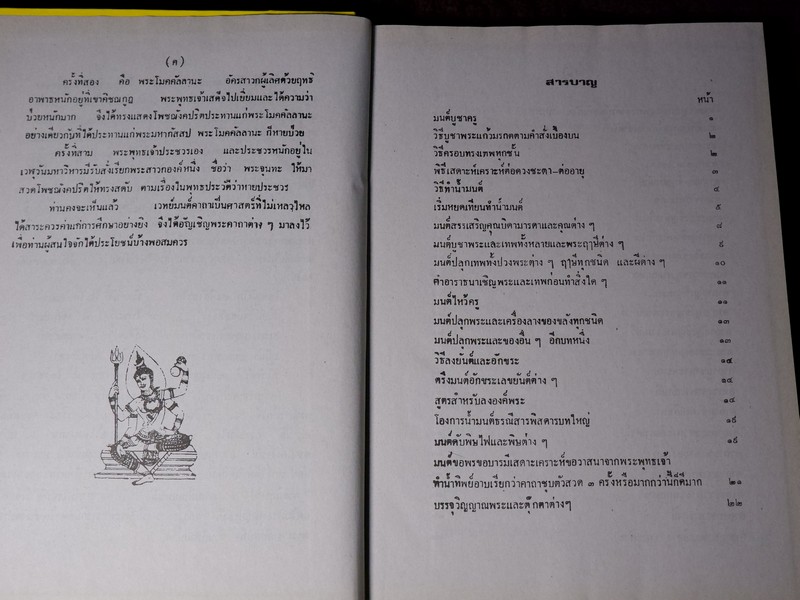 (ค)
ครั้งที่สอง คือ พระโมคคัลลานะ อัครสาวกผู้เลิศด้วยฤทธิ์
อาพาธหนักอยู่ที่เขาคิชฌกูฏ พระพุทธเจ้าเสด็จไปเยี่ยมและได้ความว่า
ป่วยหนักมาก จึงได้ทรงแสดงโพชฌังคปริตประทานแก่พระโมคคัลลานะ
อย่างเดียวกับที่ได้ประทานแก่พระมหากัสสป พระโมคคัลลานะ ก็หายป่วย
ครั้งที่สาม พระพุทธเจ้าประชวรเอง และประชวรหนักอยู่ใน
เวฬุวันมหาวิหารมีรับสั่งเรียกพระสาวกองค์หนึ่ง ชื่อว่า พระจุนทะ ให้มา
สวดโพชฌังคปริตให้ทรงสดับ ตามเรื่องในพุทธประวัติว่าหายประชวร
ท่านคงจะเห็นแล้ว เวทย์มนต์คาถาเป็นศาสตร์ที่ไม่เหลวไหล
ได้สาระควรค่าแก่การศึกษาอย่างยิ่ง จึงได้อัญเชิญพระคาถาต่าง ๆ มาลงไว้
เพื่อท่านผู้สนใจจักได้ประโยชน์บ้างพอสมควร
สารบาญ
หน้า
มนต์บูชาครู ๑
วิธีบูชาพระแก้วมรกตตามคำสั่งเบื้องบน ๒
วิธีครอบทรงเทพทุกชั้น ๒
พิธีเสดาะห์เคราะห์ต่อดวงชะตา-ต่ออายุ ๓
วิธีทำน้ำมนต์ ๔
เริ่มหยดเทียนทำน้ำมนต์ ๕
มนต์สรรเสริญคุณบิดามารดาและคุณต่าง ๆ ๘
มนต์บูชาพระและเทพทั้งหลายและพระฤๅษีต่าง ๆ ๙
มนต์ปลุกเทพทั้งปวงพระต่าง ๆ ฤๅษีทุกชนิด และผีต่าง ๆ ๑๐
คำอาราธนาเชิญพระและเทพก่อนทำสิ่งใด ๆ ๑๑
มนต์ไหว้ครู ๑๑
มนต์ปลุกพระและเครื่องลางของขลังทุกชนิด ๑๓
มนต์ปลุกพระและของอื่น ๆ อีกบทหนึ่ง ๑๓
วิธีลงยันต์และอักขระ ๑๔
ตรึงมนต์อักขระเลขยันต์ต่าง ๆ ๑๔
สูตรสำหรับลงองค์พระ ๑๔
โองการน้ำมนต์ธรณีสารพิสดารบทใหญ่ ๑๙
มนต์ดับพิษไฟและพิษต่าง ๆ ๑๙
มนต์ขอพรขอบารมีเสดาะเคราะห์ขอวาสนาจากพระพุทธเจ้า
ทำน้ำทิพย์อาบเรียกว่าคาถาชุบตัวสวด ๓ ครั้งหรือมากกว่านี้ก็ดีมาก ๒๑
บรรจุวิญญาณพระและตุ๊กตาต่างๆ ๒๒